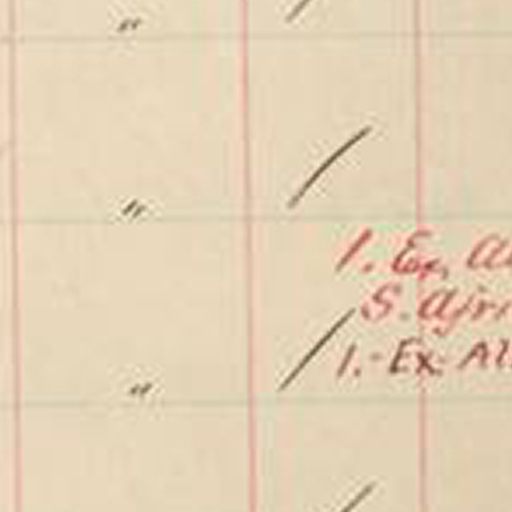 "
"
1. Ex. Al
S. Afri
1.- Ex- Al
"